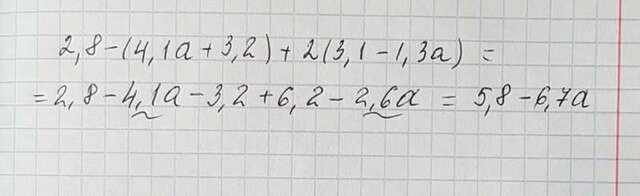 2,8-(4,1a+3,2)+2(3,1-1,3a)=
=2,8-4,1a-3,2+6,2-2,6a=5,8-6,7a